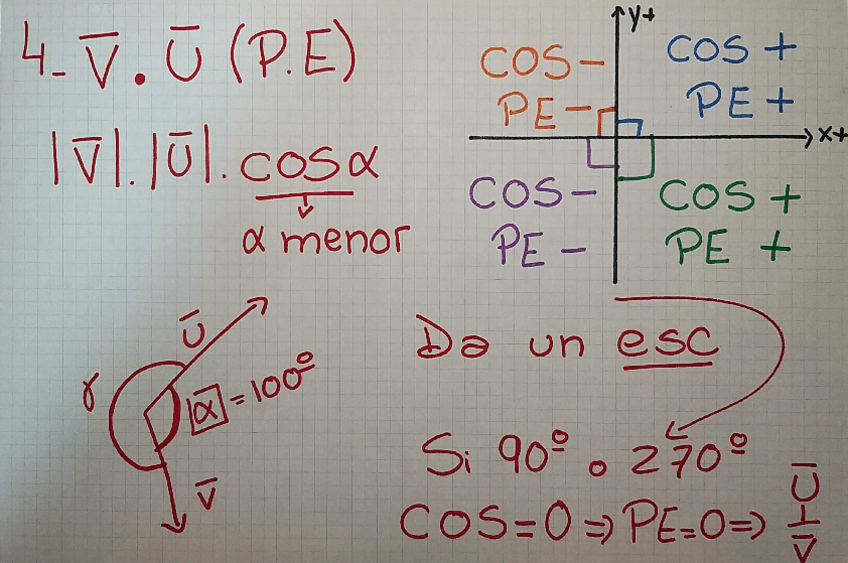 4- V̄ . Ū (P.E)
|V̄| . |Ū| . cos α
α menor
y+
x+
COS -
PE -
COS +
PE +
COS -
PE -
COS +
PE +
Ū
γ
|α| = 100º
V̄
Da un esc
Si 90º o 270º
COS = 0 ⇒ PE = 0 ⇒ Ū ⊥ V̄